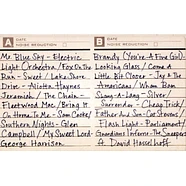 A DATE
NOISE REDUCTION
Mr. Blue Sky - Electric
Light Orchestra / Fox On The
Run - Sweet / Lake Shore
Drive - Aliotta Haynes
Jeremiah / The Chain -
Fleetwood Mac / Bring It
On Home To Me - Sam Cooke/
Southern Nights - Glen
Campbell / My Sweet Lord -
George Harrison
B DATE
NOISE REDUCTION
Brandy (You're A Fine Girl) -
Looking Glass / Come A
Little Bit Closer - Jay & The
Americans / Wham Bam
Shang-A-Lang - Silver /
Surrender - Cheap Trick /
Father And Son - Cat Stevens /
Flash Light - Parliament /
Guardians Inferno - The Sneepers
ft. David Hasselhoff